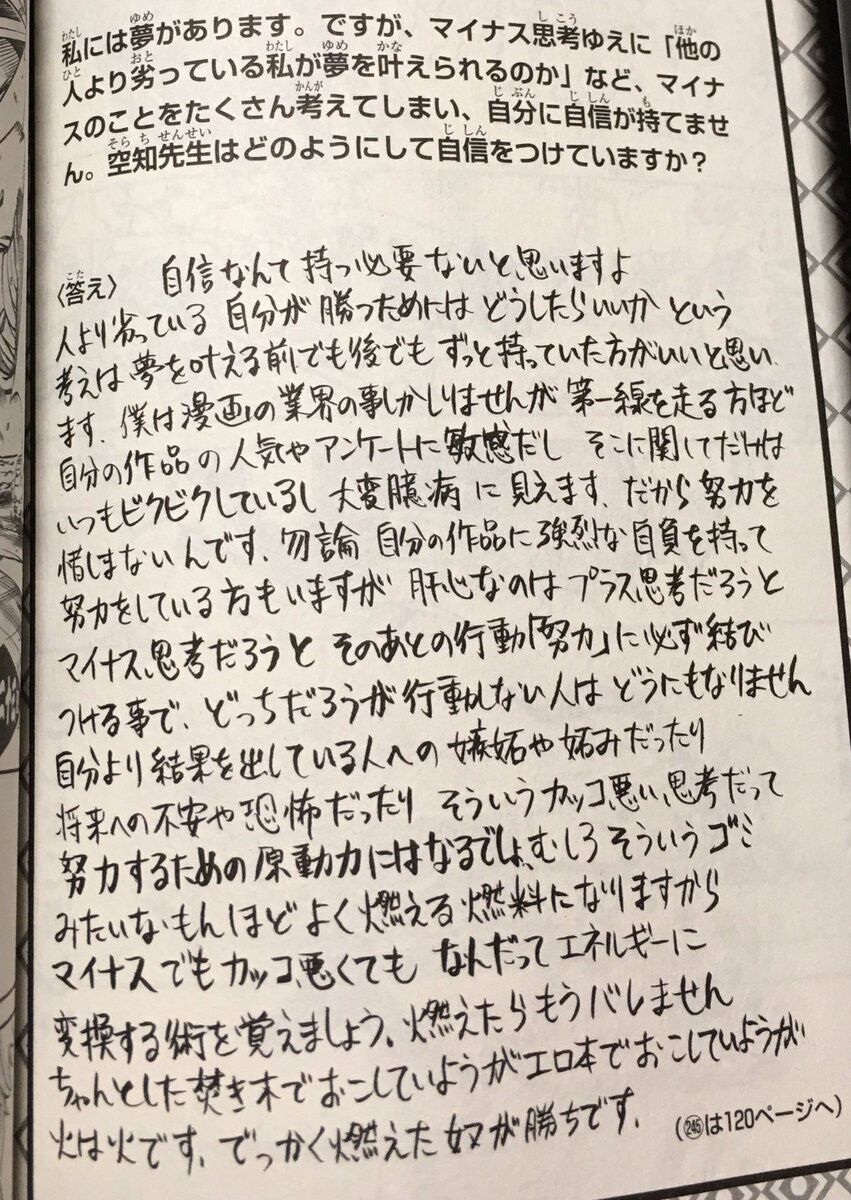 私には夢があります。ですが、マイナス思考ゆえに「他の
人より劣っている私が夢を叶えられるのか」など、マイナ
スのことをたくさん考えてしまい、自分に自信が持てませ
ん。空知先生はどのようにして自信をつけていますか？
〈答え〉 自信なんて持つ必要ないと思いますよ
人より劣っている 自分が勝つためには どうしたらいいか という
考えは夢を叶える前でも後でも ずっと持っていた方がいいと思い
ます、僕は漫画の業界の事しかしりませんが 第一線を走る方ほど
自分の作品の人気やアンケートに敏感だし そこに関してだけは
いつもビクビクしているし 大変臆病に見えます、だから努力を
惜しまないんです、勿論 自分の作品に強烈な自負を持って
努力をしている方もいますが 肝心なのは プラス思考だろうと
マイナス思考だろうと そのあとの行動「努力」に必ず結び
つける事で、どっちだろうが行動しない人は どうにもなりません
自分より結果を出している人への 嫉妬や妬みだったり
将来への不安や恐怖だったり そういうカッコ悪い思考だって
努力するための原動力にはなるでしょ、むしろ そういうゴミ
みたいなもんほど よく燃える燃料になりますから
マイナスでもカッコ悪くても なんだってエネルギーに
変換する術を覚えましょう、燃えたらもうバレません
ちゃんとした焚き木でおこしていようがエロ本でおこしていようが
火は火です、でっかく燃えた奴が勝ちです、
（245は120ページへ）